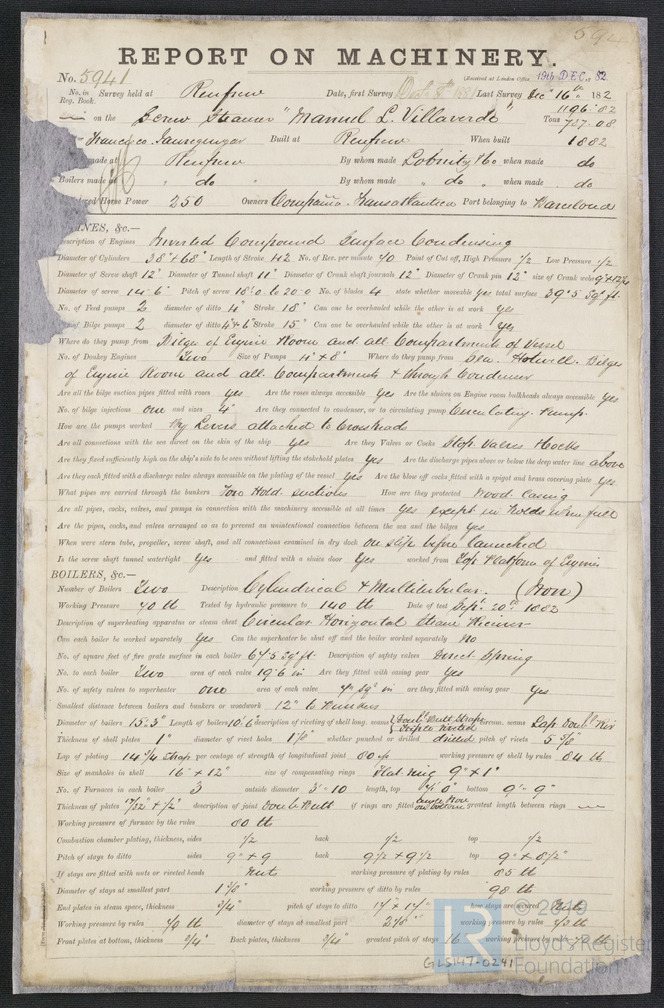 594
REPORT ON MACHINERY.
No. 5941 (Received at London Office 19th DEC. 82
No. in Reg. Book. Survey held at Renfrew Date, first Survey 1881 Last Survey Dec 16th 1882
on the Screw Steamer "Manuel L. Villaverde" Tons 1196.82 727.08
Built at Renfrew When built 1882
made at Renfrew By whom made Lobnitz & Co when made do
Boilers made at do By whom made do when made do
Horse Power 250 Owners Compañia Transatlantica Port belonging to Barcelona
INES, &c.—
Description of Engines Inverted Compound Surface Condensing
Diameter of Cylinders 38" & 68" Length of Stroke 42 No. of Rev. per minute 70 Point of Cut off, High Pressure 1/2 Low Pressure 1/2
Diameter of Screw shaft 12" Diameter of Tunnel shaft 11" Diameter of Crank shaft journals 12" Diameter of Crank pin 12" size of Crank webs
Diameter of screw 14-6 Pitch of screw 18.0 to 20.0 No. of blades 4 state whether moveable yes total surface 39.5 sq ft.
No. of Feed pumps 2 diameter of ditto 4" Stroke 18" Can one be overhauled while the other is at work yes
of Bilge pumps 2 diameter of ditto 4" & 6" Stroke 15" Can one be overhauled while the other is at work yes
Where do they pump from Bilges of Engine Room and all Compartments of Vessel
No. of Donkey Engines Two Size of Pumps 4" & 8" Where do they pump from Sea. Hotwell. Bilges
of Engine Room and all Compartments & through Condenser
Are all the bilge suction pipes fitted with roses yes Are the roses always accessible yes Are the sluices on Engine room bulkheads always accessible yes
No. of bilge injections one and sizes 4" Are they connected to condenser, or to circulating pump Circulating Pump
How are the pumps worked By Levers attached to Crossheads
Are all connections with the sea direct on the skin of the ship yes Are they Valves or Cocks Stop Valves & Cocks
Are they fixed sufficiently high on the ship's side to be seen without lifting the stokehold plates yes Are the discharge pipes above or below the deep water line above
Are they each fitted with a discharge valve always accessible on the plating of the vessel yes Are the blow off cocks fitted with a spigot and brass covering plate yes
What pipes are carried through the bunkers Fore Hold suctions How are they protected Wood Casing
Are all pipes, cocks, valves, and pumps in connection with the machinery accessible at all times yes except in Holds when full
Are the pipes, cocks, and valves arranged so as to prevent an unintentional connection between the sea and the bilges yes
When were stern tube, propeller, screw shaft, and all connections examined in dry dock on slip before launched
Is the screw tunnel watertight yes and fitted with a sluice door yes worked from Top Platform of Engines
BOILERS, &c.—
Number of Boilers Two Description Cylindrical & Multitubular. (Iron)
Working Pressure 70 lb Tested by hydraulic pressure to 140 lb Date of test Sept. 20th 1882
Description of superheating apparatus or steam chest Circular Horizontal Steam Receiver
Can each boiler be worked separately yes Can the superheater be shut off and the boiler worked separately No
No. of square feet of fire grate surface in each boiler 67.5 sq ft. Description of safety valves Direct Spring
No. to each boiler Two area of each valve 19.6 in Are they fitted with easing gear yes
No. of safety valves to superheater one area of each valve sq in are they fitted with easing gear yes
Smallest distance between boilers and bunkers or woodwork 12" to Bunkers
Diameter of boilers 15.3" Length of boilers 10.6 description of riveting of shell long. seams Double Butt Straps Triple Riveted circum. seams Lap Doubl Riv
Thickness of shell plates 1" diameter of rivet holes 1 1/8" whether punched or drilled drilled pitch of rivets 5 5/8"
Lap of plating 14 3/4 straps per centage of strength of longitudinal joint 80 working pressure of shell by rules 84 lb
Size of manholes in shell 16" + 12" size of compensating rings Flat ring 9" + 1"
No. of Furnaces in each boiler 3 outside diameter 3'-10 length, top bottom 9'-9"
Thickness of plates description of joint Double Butt if rings are fitted greatest length between rings —
Working pressure of furnace by the rules 80 lb
Combustion chamber plating, thickness, sides 1/2 back 1/2 top 1/2
Pitch of stays to ditto sides 9" + 9 back 9 1/2 + 9 1/2 top 9" + 8 1/2"
If stays are fitted with nuts or riveted heads Nuts working pressure of plating by rules 85 lb
Diameter of stays at smallest part 1 1/8" working pressure of ditto by rules 98 lb
End plates in steam space, thickness 3/4" pitch of stays to ditto how stays are secured Nuts
Working pressure by rules 70 lb diameter of stays at smallest part working pressure by rules
Front plates at bottom, thickness 3/4" Back plates, thickness 3/4" greatest pitch of stays 16 working pressure by rules
© 2019
Lloyd's Register
Foundation
GLS147-0241